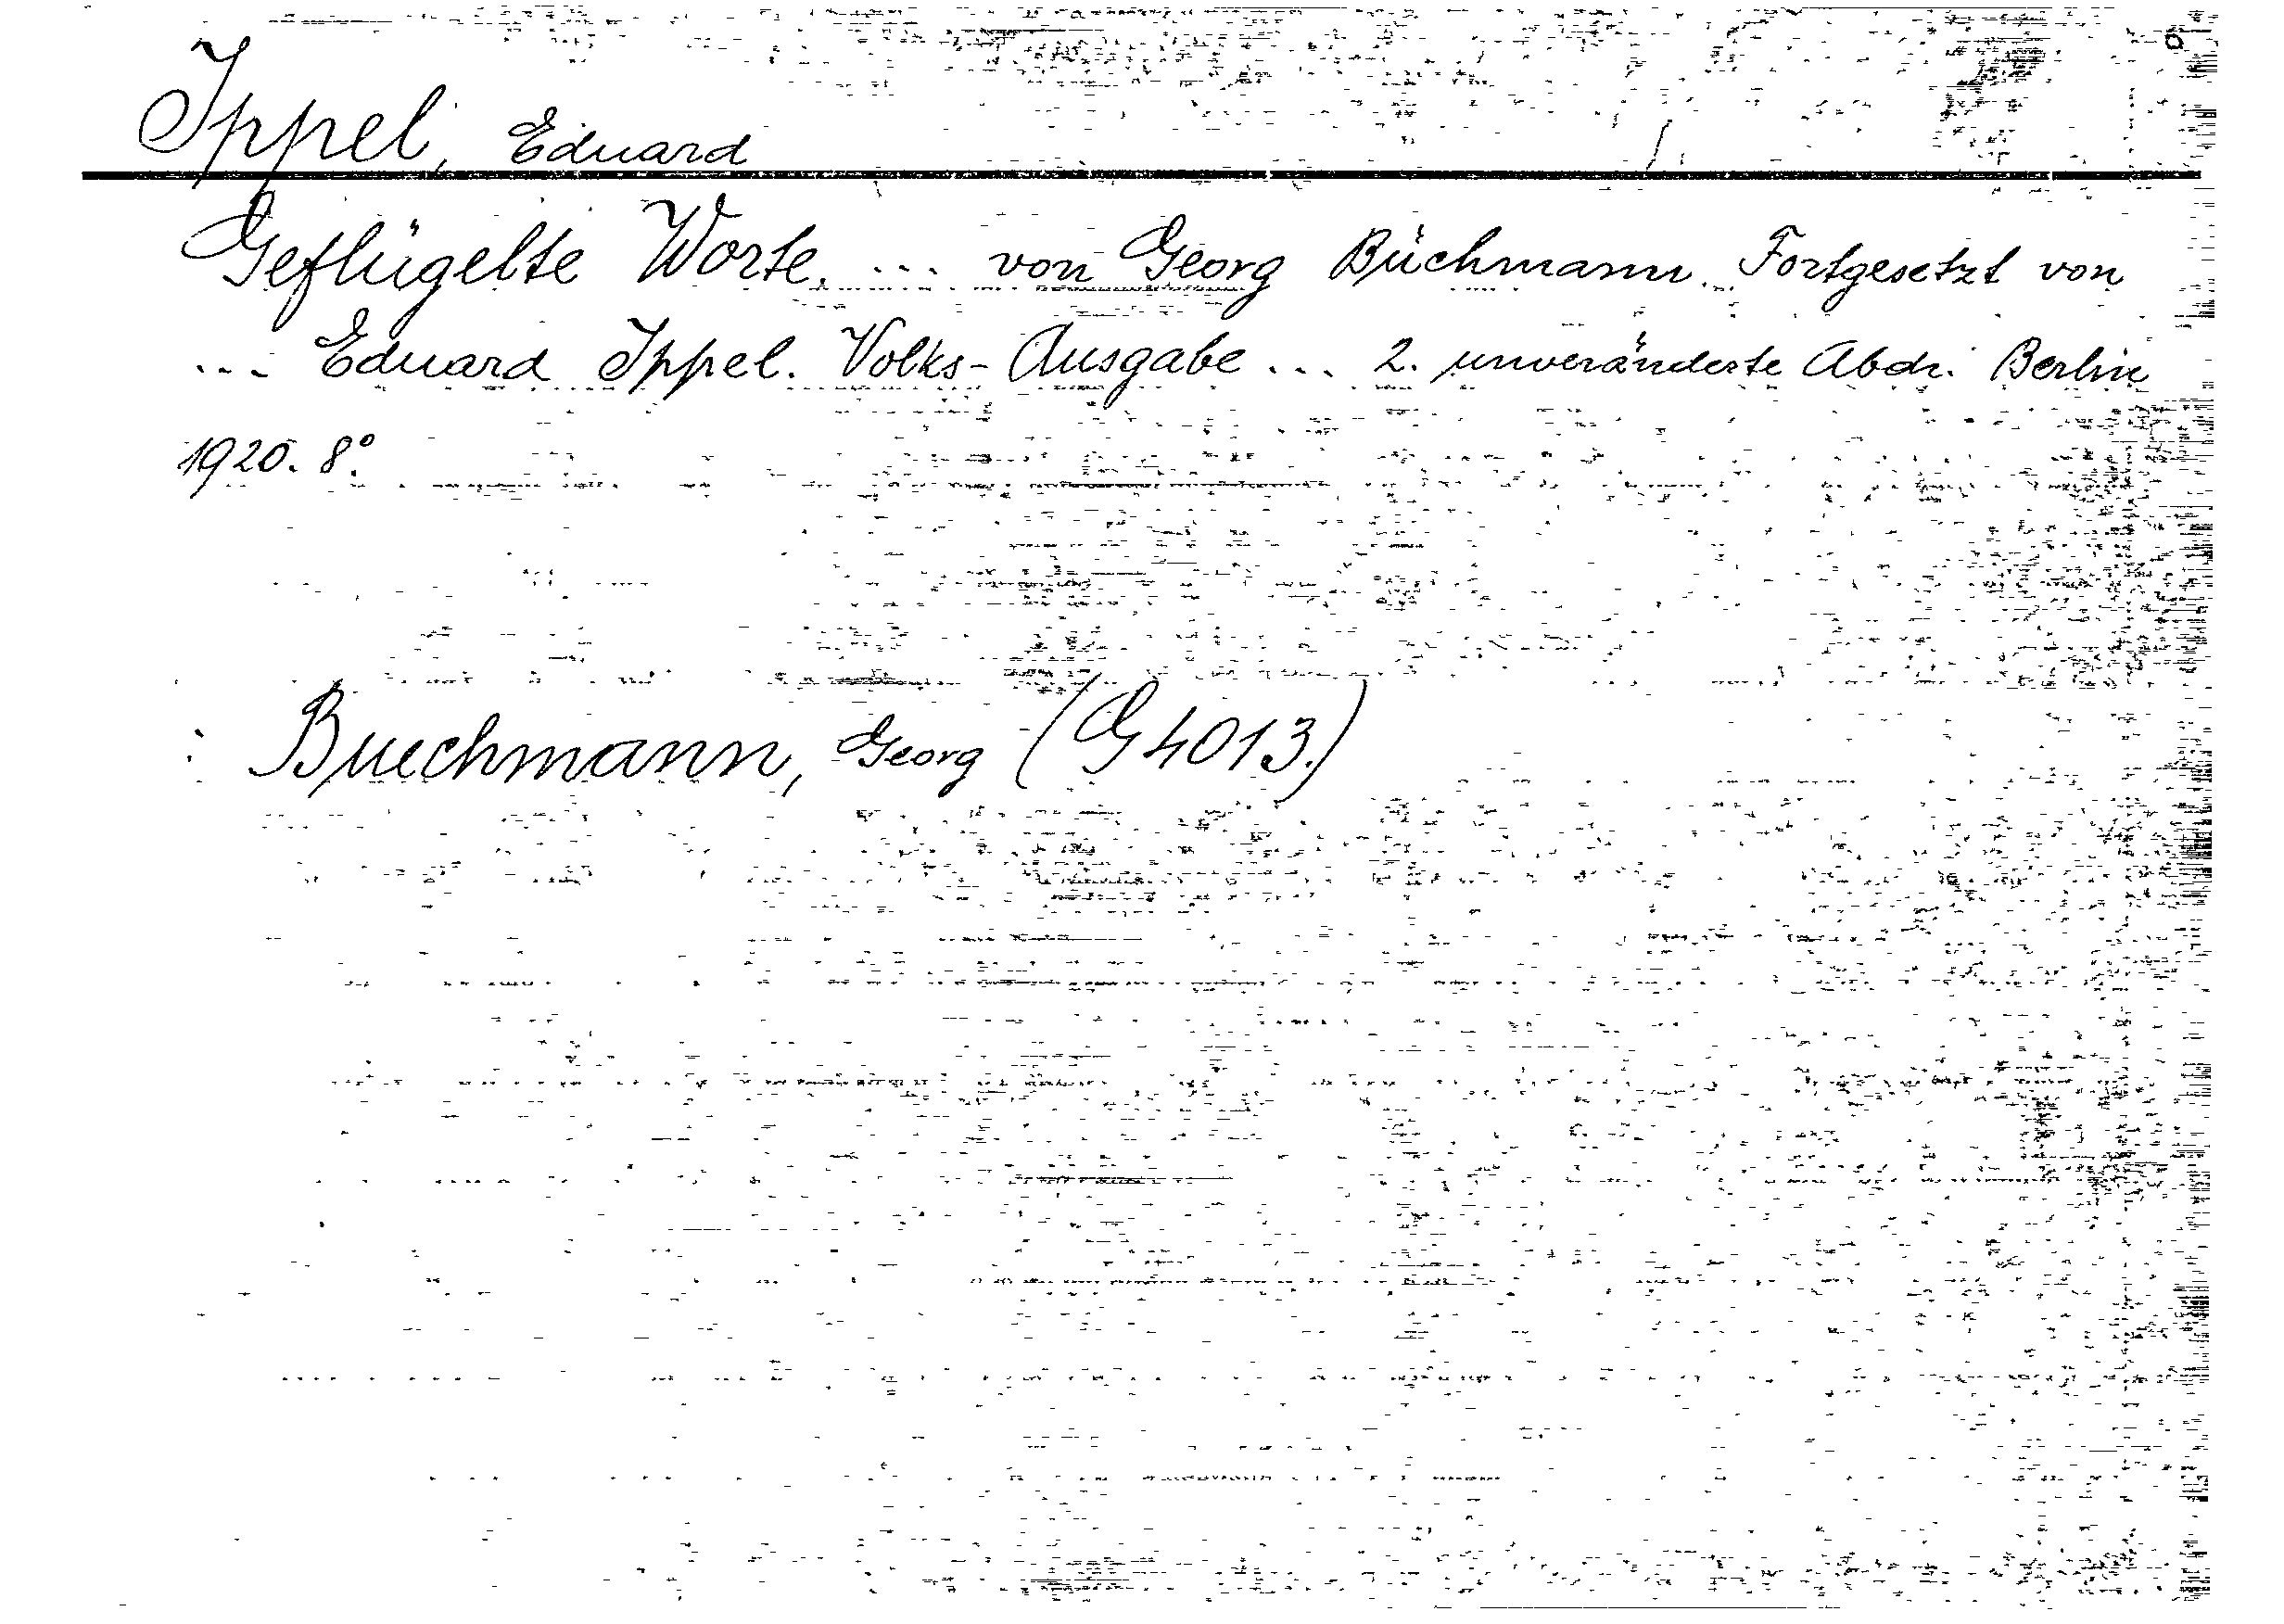 Ippel, Eduard
Geflügelte Worte. ... von Georg Büchmann. Fortgesetzt von
... Eduard Ippel. Volks-Ausgabe ... 2. unveränderte Abdr. Berlin
1920. 8°.
: Buechmann, Georg (G 4013.)